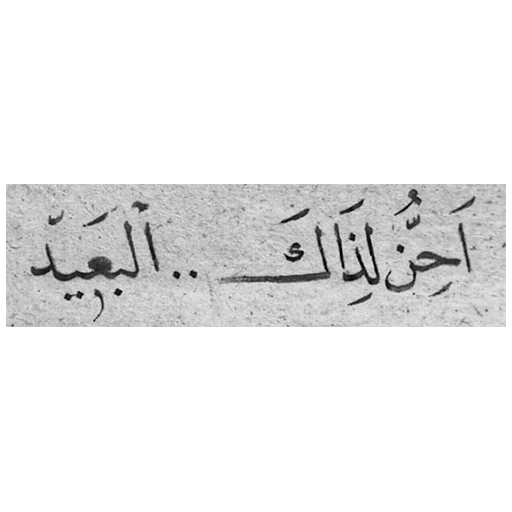 اَحِنُّ لِذَاكَ .. البعَيدّ